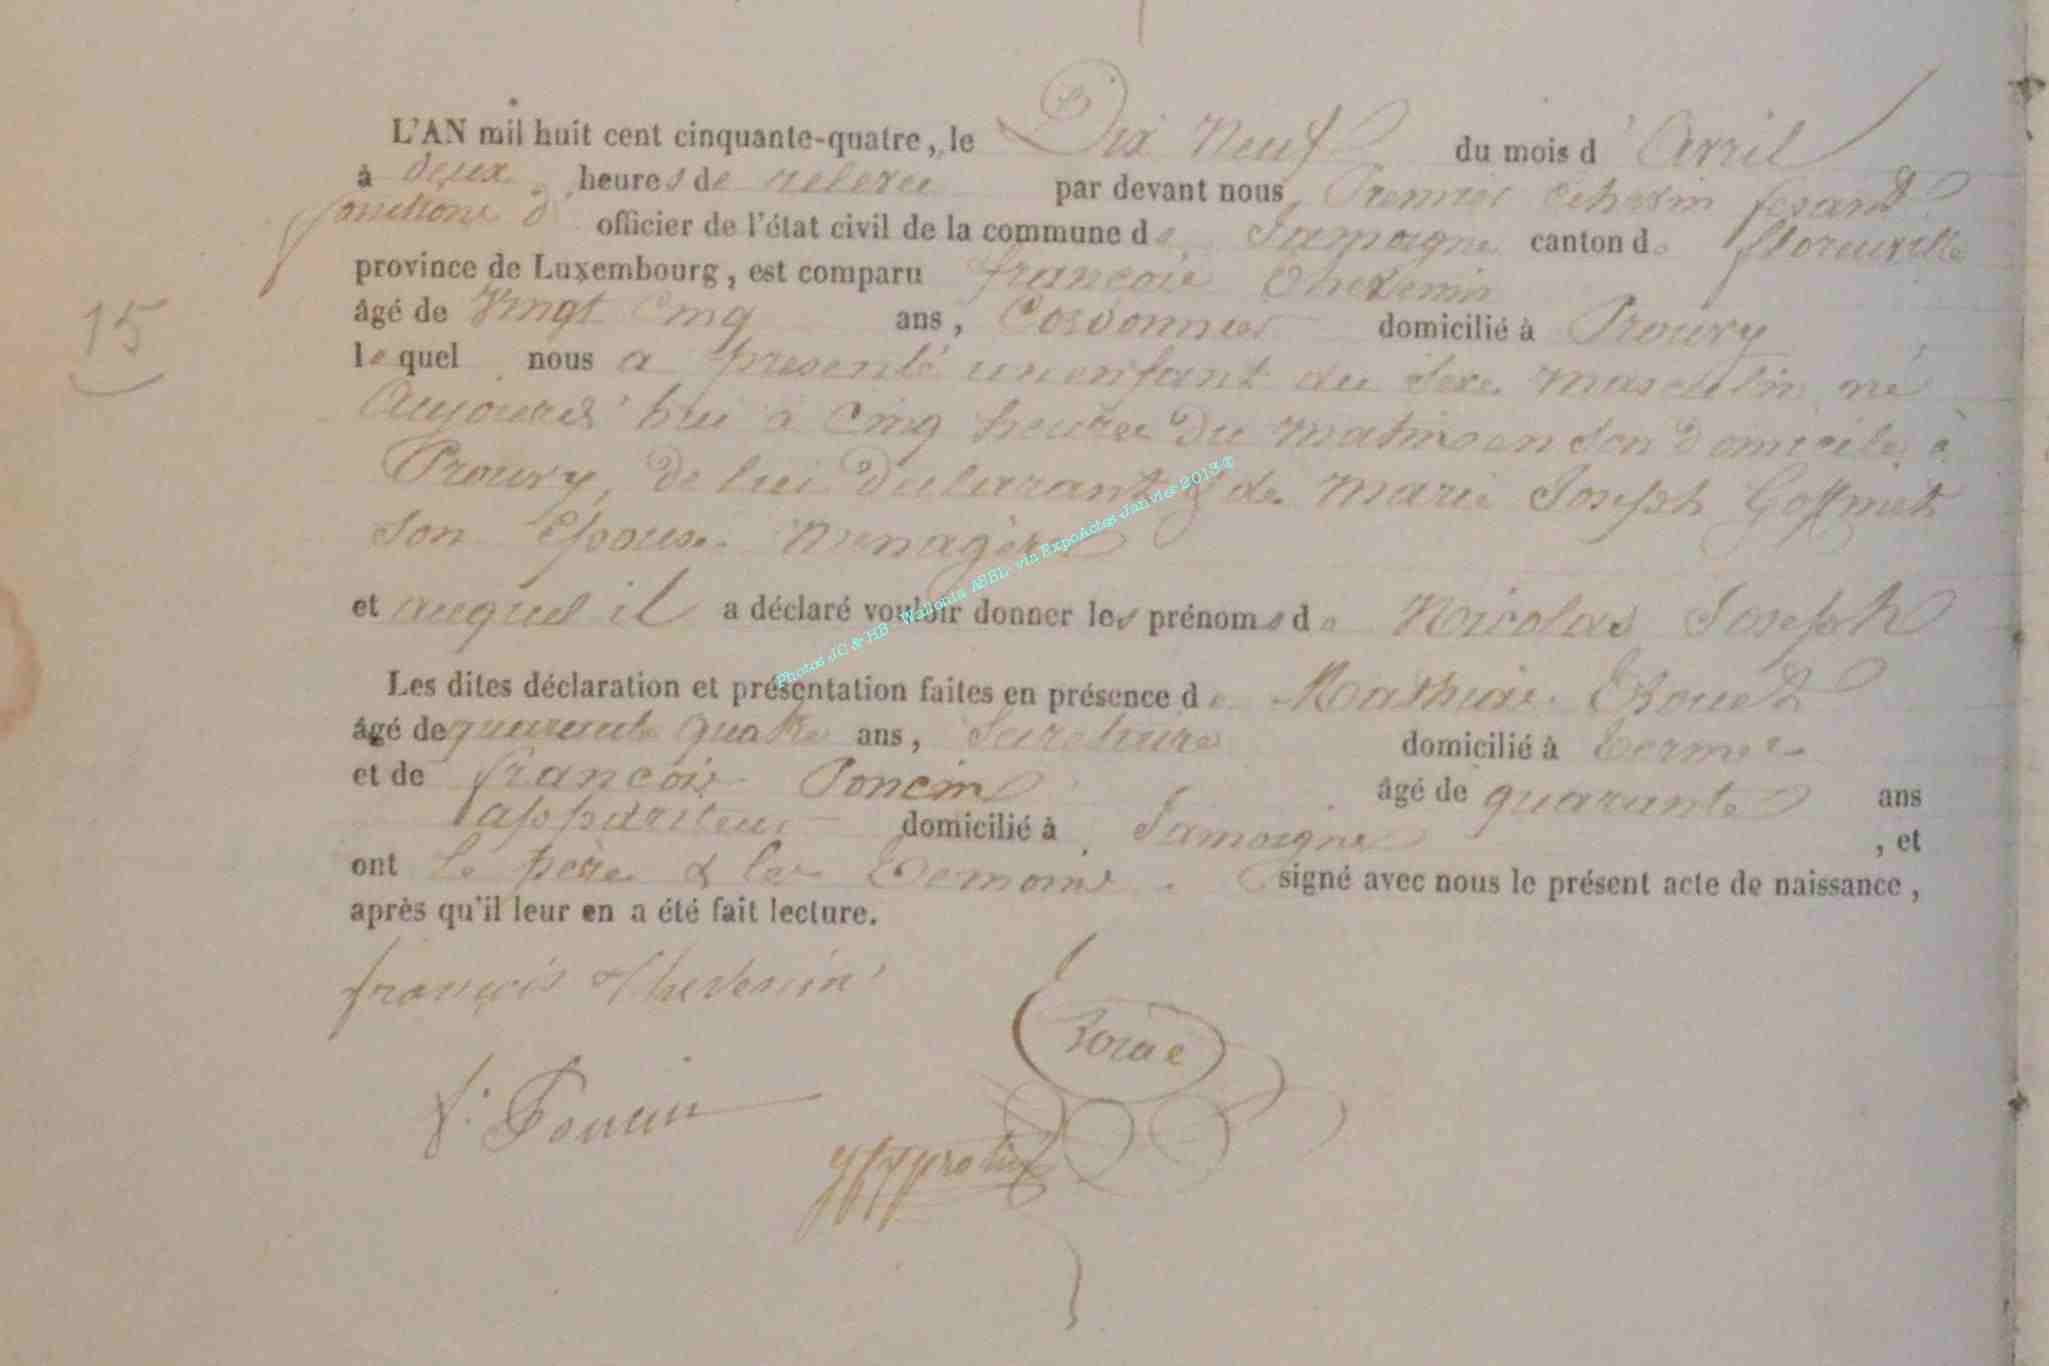 L'AN mil huit cent cinquante-quatre, le Dix Neuf du mois d'Avril
à deux heures de relevée par devant nous, Premier Echevin fesant
fonctions d' officier de l'état civil de la commune de Jamoigne canton de florenville
province de Luxembourg, est comparu françois Thevenin
âgé de Vingt Cinq ans, Cordonnier domicilié à Prouvy
15
lequel nous a presenté un enfant du sexe masculin, né
Aujourd'hui à Cinq heures du matin en son domicile à
Prouvy, de lui déclarant & de Marie Joseph Goffinet
son Epouse Menagère
et auquel il a déclaré vouloir donner les prénoms de Nicolas Joseph
Les dites déclaration et présentation faites en présence de Mathieu
âgé de quarante quatre ans, domicilié à Termes
et de françois Poncin âgé de quarante ans
appariteur domicilié à Jamoigne, et
ont le père & les Temoins signé avec nous le présent acte de naissance,
après qu'il leur en a été fait lecture.
françois Thevenin
f. Poncin
Photos JC & HB - Wallonia ASBL via ExpoActes Janvier 2013 ©